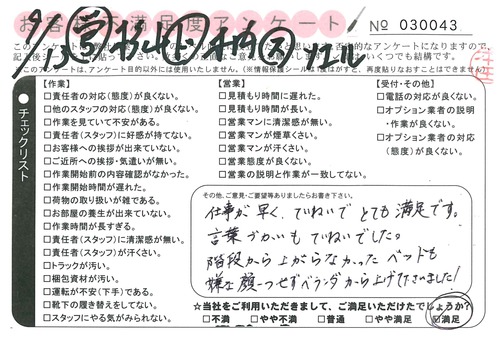 お客様不満足度アンケート
№ 030043
チェックリスト
【作業】
□責任者の対応(態度)が良くない。
□他のスタッフの対応(態度)が良くない。
□作業を見ていて不安がある。
□責任者(スタッフ)に好感が持てない。
□お客様への挨拶が出来ていない。
□ご近所への挨拶・気遣いが無い。
□作業開始前の内容確認がなかった。
□作業開始時間が遅れた。
□荷物の取り扱いが雑である。
□お部屋の養生が出来ていない。
□作業時間が長すぎる。
□責任者(スタッフ)に清潔感が無い。
□責任者(スタッフ)が汗くさい。
□トラックが汚い。
□梱包資材が汚い。
□運転が不安(下手)である。
□靴下の履き替えをしてない。
□スタッフにやる気がみられない。
【営業】
□見積もり時間に遅れた。
□見積もり時間が長い。
□営業マンに清潔感が無い。
□営業マンが煙草くさい。
□営業マンが汗くさい。
□営業態度が良くない。
□営業の説明と作業が一致してない。
【受付・その他】
□電話の対応が良くない。
□オプション業者の説明
・作業が良くない。
□オプション業者の対応
(態度)が良くない。
その他、ご意見・ご要望等ありましたらお書き下さい。
仕事が早く、ていねいでとても満足です。
言葉づかいもていねいでした。
階段から上がらなかったベッドも
嫌な顔一つせずベランダから上げて下さいました!
☆当社をご利用いただきまして、ご満足いただけたでしょうか?
□不満 □やや不満 □普通 □やや満足 ☑満足